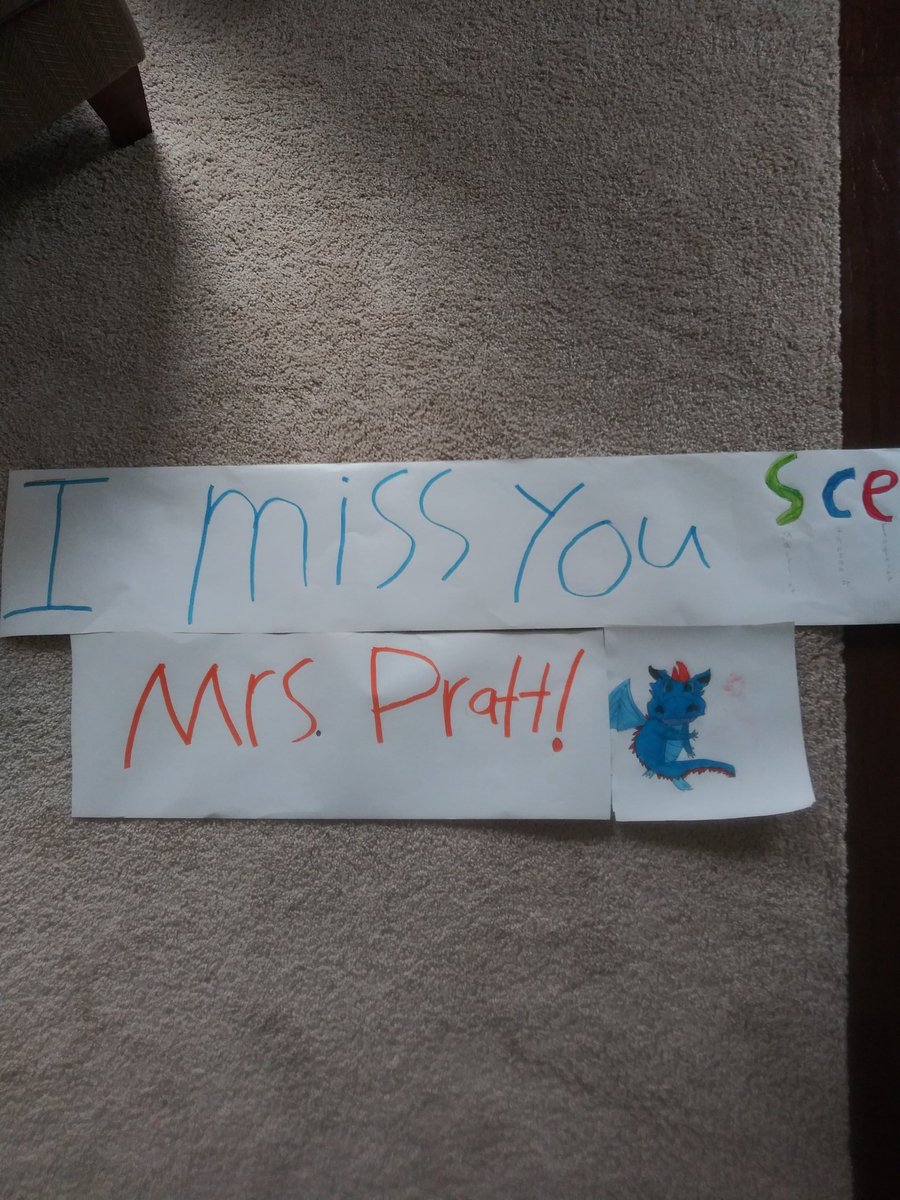 I miss You sce
Mrs. Pratt!